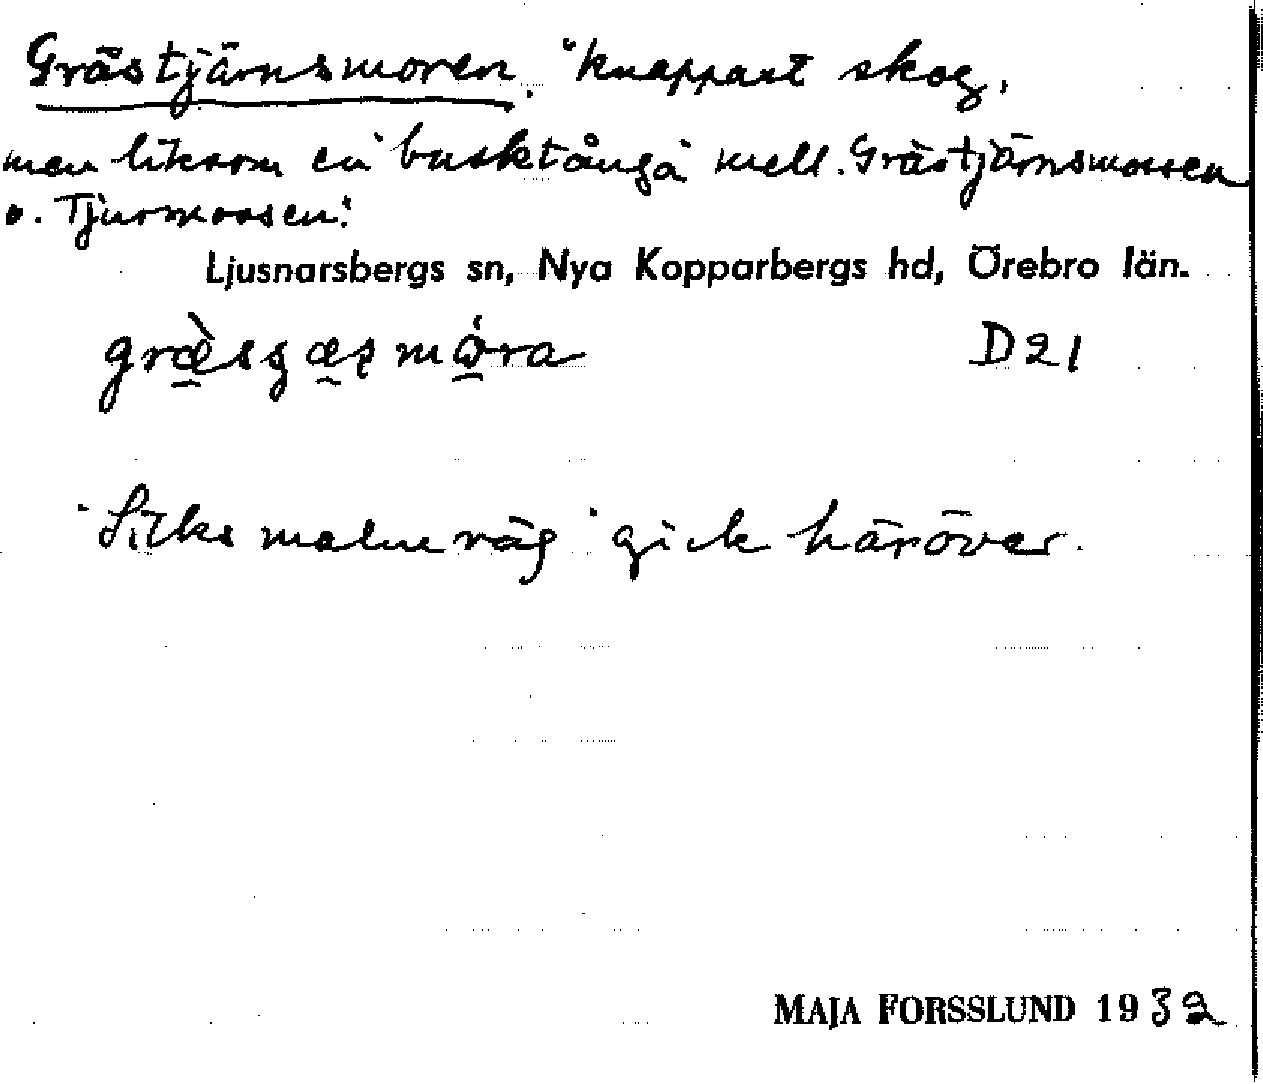 Grästjärnsmoren. "knappast skog,
men liksom en" busktånga" mell. Grästjärnsmossen
o. Tjurmossen".
Ljusnarsbergs sn, Nya Kopparbergs hd, Örebro län.
D21
väg" gick häröver.
MAJA FORSSLUND 1932